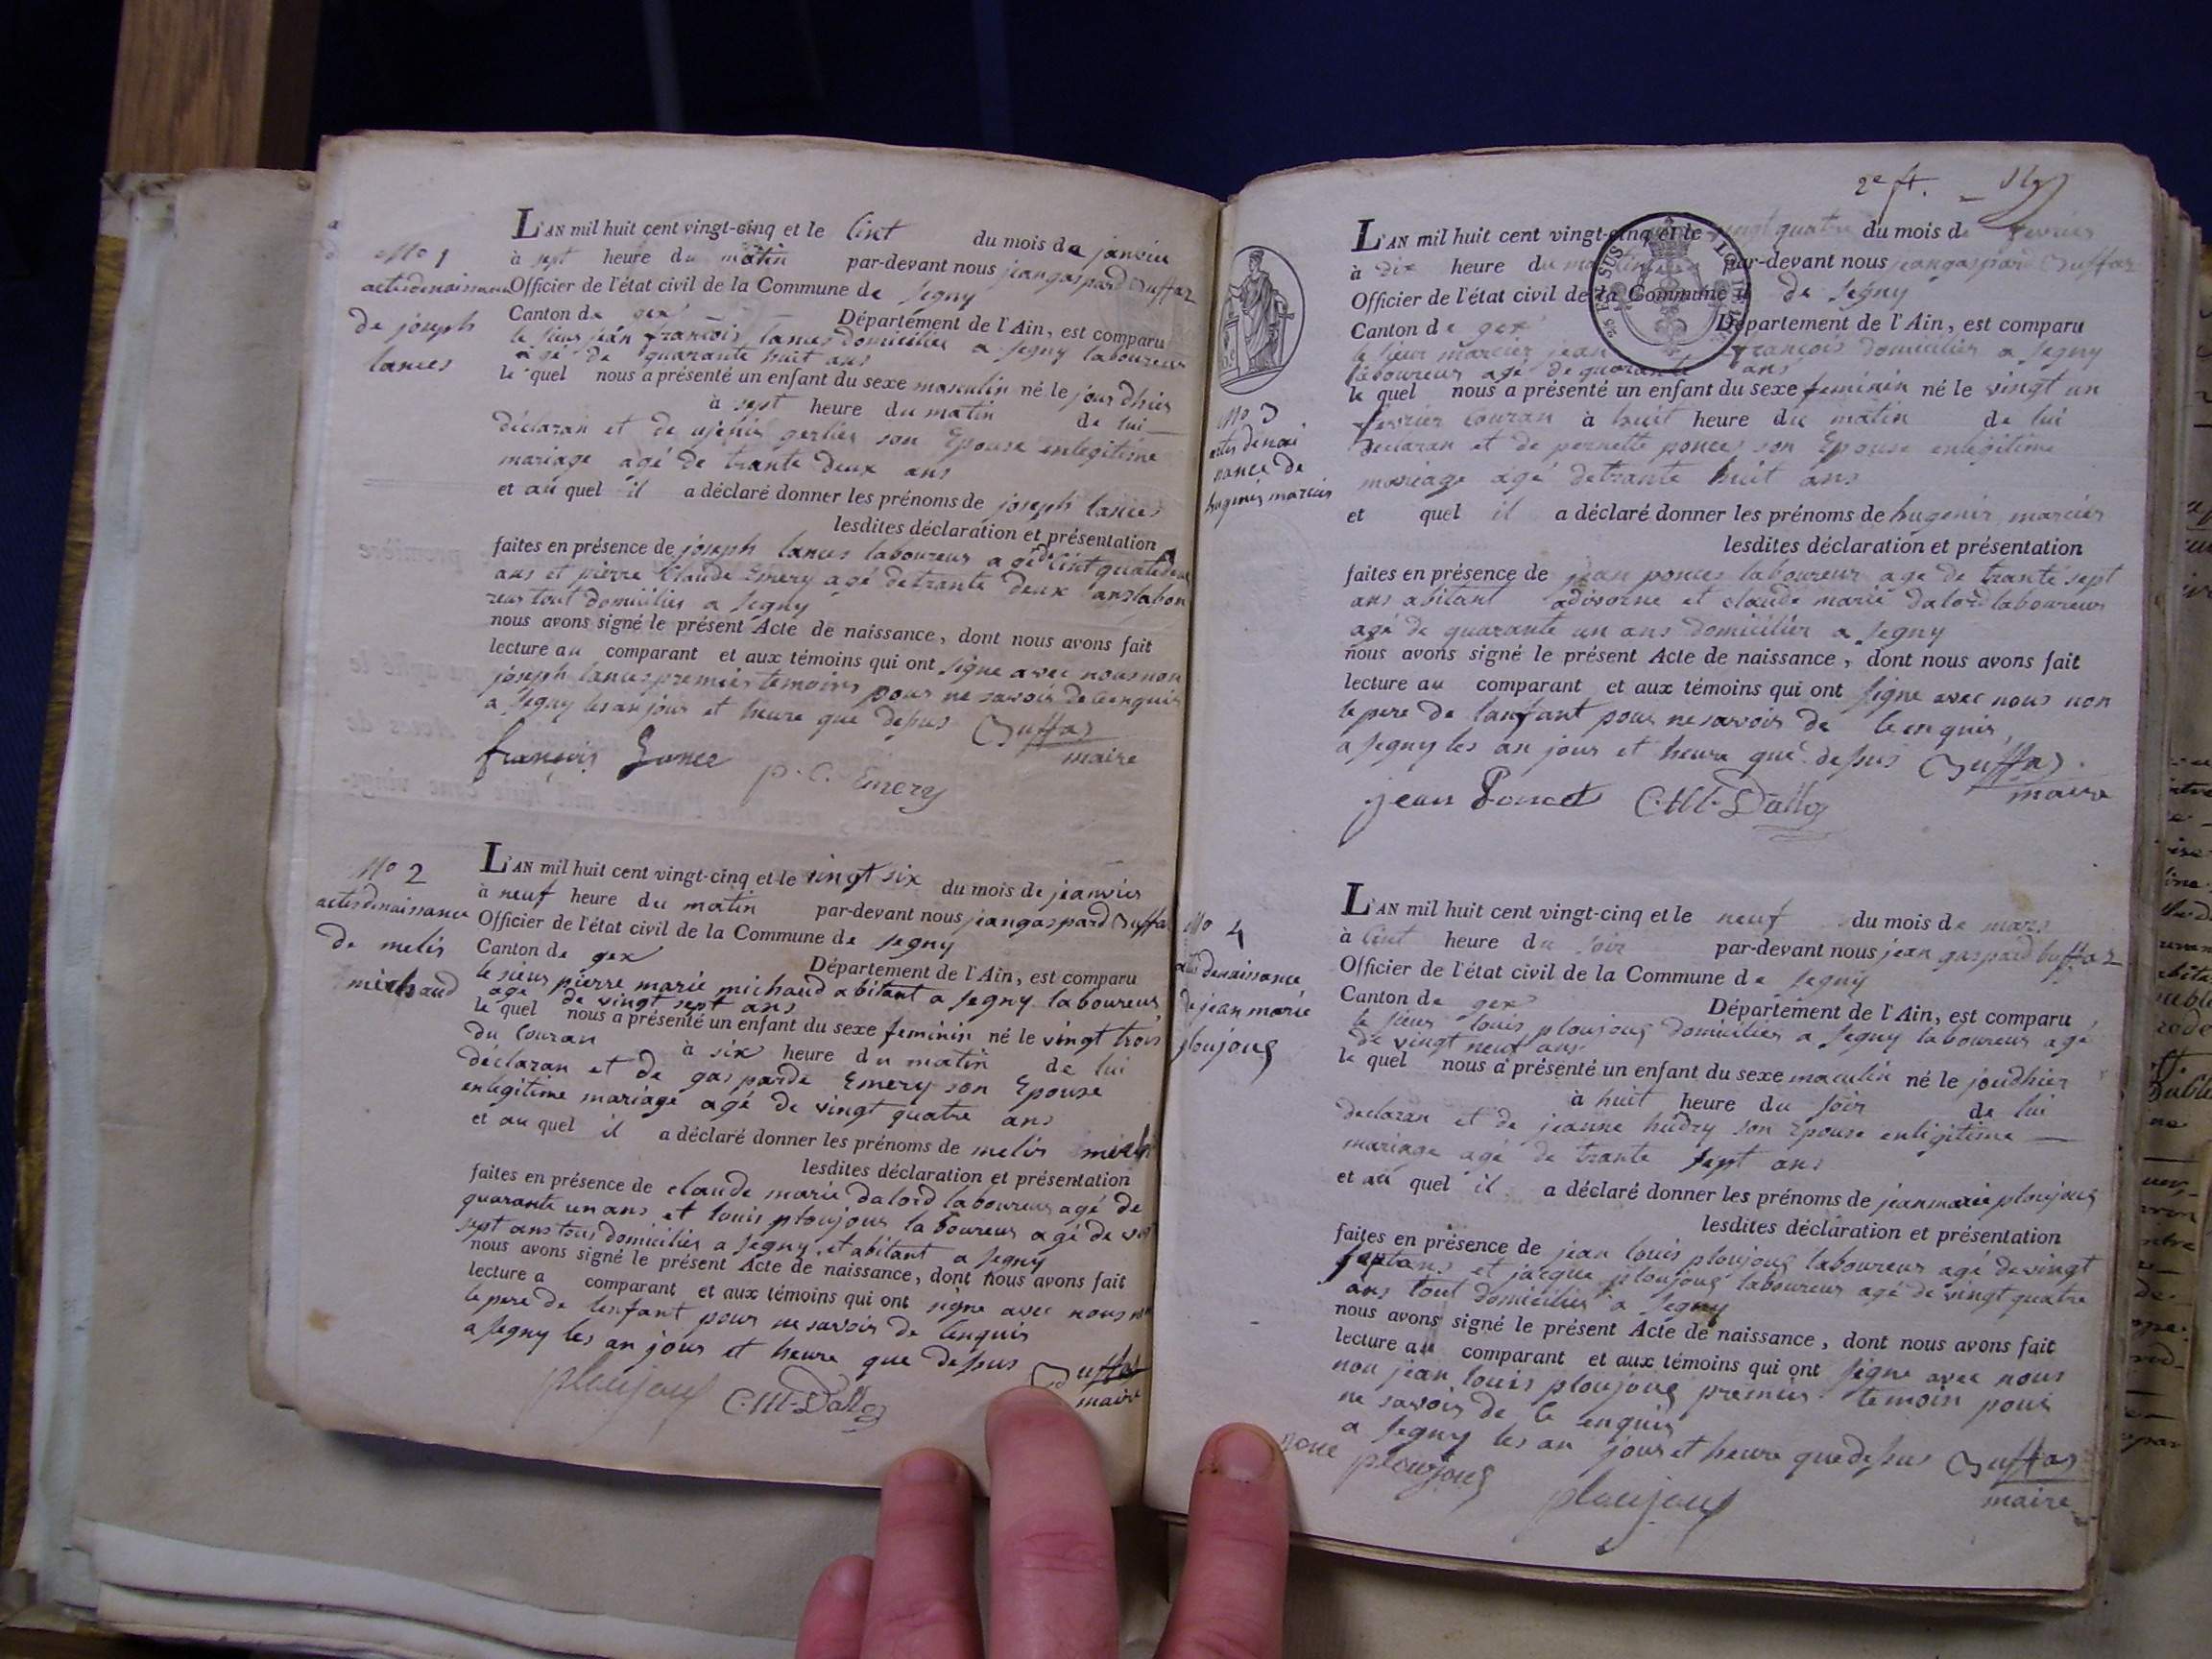 No 1
actes de naissance
de joseph
lances
L'AN mil huit cent vingt-cinq et le cint du mois de janvier
à sept heure du matin par-devant nous jean gaspard Buffaz
Officier de l'état civil de la Commune de segny
Canton de gex Département de l'Ain, est comparu
le sieur jean françois lances domicilier a segny laboureur
agé de quarante huit ans
le quel nous a présenté un enfant du sexe masculin né le jour dhier
à sept heure du matin de lui
déclaran et de gerlier son Epouse enlegitime
mariage agé de trante deux ans
et au quel il a déclaré donner les prénoms de joseph lances
lesdites déclaration et présentation
faites en présence de joseph lances laboureur agé de
ans et pierre Claude Emery agé de trante deux ans labou
reur tout domicilier a segny
nous avons signé le présent Acte de naissance, dont nous avons fait
lecture au comparant et aux témoins qui ont signe avec nous non
joseph lances premier temoins pour ne savoir de ce enquis
a segny les an jour et heure que desus Buffaz
maire
françois Lance P. C. Emery
No 2
actes de naissance
de melis
michaud
L'AN mil huit cent vingt-cinq et le vingt six du mois de jeanvier
à neuf heure du matin par-devant nous jean gaspard Buffa
Officier de l'état civil de la Commune de segny
Canton de gex Département de l'Ain, est comparu
le sieur pierre marie michaud abitant a segny laboureur
agé de vingt sept ans
le quel nous a présenté un enfant du sexe feminin né le vingt trois
du couran à six heure du matin de lui
déclaran et de gasparde Emery son Epouse
enlegitime mariage agé de vingt quatre ans
et au quel il a déclaré donner les prénoms de melis
lesdites déclaration et présentation
faites en présence de claude marie dalord laboureur agé de
quarante un ans et louis ploujoux laboureur agé de
sept ans tous domicilier a segny, et abitant a segny
nous avons signé le présent Acte de naissance, dont nous avons fait
lecture a comparant et aux témoins qui ont signe avec nous non
le pere de lenfant pour ne savoir de lenquis
a segny les an jour et heure que desus Buffaz
maire
ploujoux C. M. Dalloz
2e ft.
No 3
actes de nai
sance de
hugenis marcier
L'AN mil huit cent vingt-cinq et le vingt quatre du mois de fevrier
à dix heure du matin par-devant nous jean gaspard Buffaz
Officier de l'état civil de la Commune de segny
Canton de gex Département de l'Ain, est comparu
le sieur marcier jean françois domicilier a segny
laboureur agé de quarante ans
le quel nous a présenté un enfant du sexe feminin né le vingt un
fevrier couran à huit heure du matin de lui
déclaran et de pernette poncet son Epouse enlegitime
mariage agé de trante huit ans
et quel il a déclaré donner les prénoms de hugenis marcier
lesdites déclaration et présentation
faites en présence de jean poncet laboureur age de trante sept
ans abitant a divorne et claude marie dalord laboureur
agé de quarante un ans domicilier a segny
nous avons signé le présent Acte de naissance, dont nous avons fait
lecture au comparant et aux témoins qui ont signe avec nous non
le pere de lanfant pour ne savoir de lenquis,
a segny les an jour et heure que desus Buffaz
maire
jean Poncet C. M. Dalloz
No 4
actes de naissance
de jean marie
ploujoux
L'AN mil huit cent vingt-cinq et le neuf du mois de mars
à cint heure du soir par-devant nous jean gaspard buffaz
Officier de l'état civil de la Commune de segny
Canton de gex Département de l'Ain, est comparu
le sieur louis ploujoux domicilier a segny laboureur agé
de vingt neuf ans
le quel nous a présenté un enfant du sexe maculin né le joudhier
à huit heure du soir de lui
declaran et de jeanne hudry son Epouse enligitime
mariage agé de trante sept ans
et au quel il a déclaré donner les prénoms de jean marie ploujoux
lesdites déclaration et présentation
faites en présence de jean louis ploujoux laboureur agé de vingt
sept ans et jacque ploujoux laboureur agé de vingt quatre
ans tout domicilier a segny
nous avons signé le présent Acte de naissance, dont nous avons fait
lecture au comparant et aux témoins qui ont signe avec nous
non jean louis ploujoux premier temoin pour
ne savoir de ce enquis
a segny les an jour et heure que desus Buffaz
maire
ploujoux ploujoux